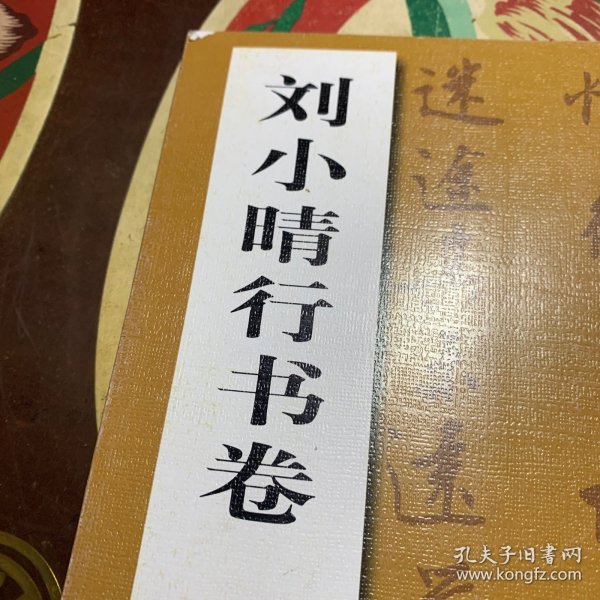 刘小晴行书卷
迷途其未远
孔夫子旧书网
www.kongfz.com